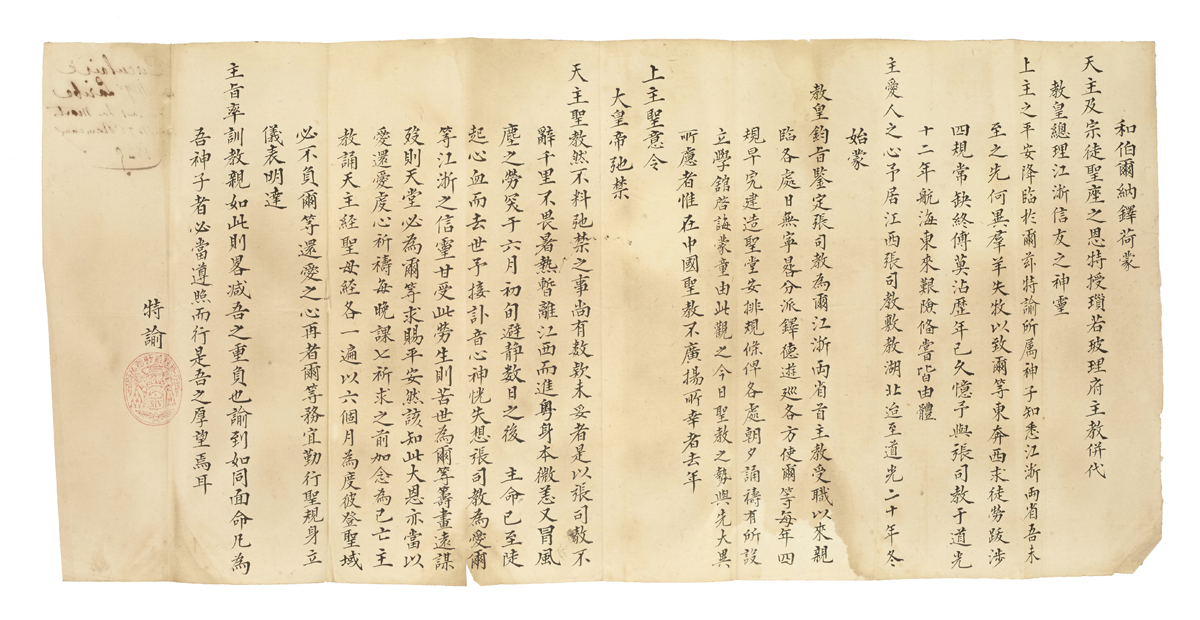 和伯爾納鐸荷蒙
天主及宗徒聖座之恩特授瑣若玻理府主教併代
教皇總理江浙信友之神靈
上主之平安降臨於爾茲特諭所属神子知悉江浙両省吾未
至之先何異羣羊失牧以致爾等東奔西求徒勞跋涉
四規常缺終傅莫沾歷年已久憶予與張司教于道光
十二年航海東來艱險俻嘗皆由體
主愛人之心予居江西張司教敷教湖北迨至道光二十年冬
始蒙
教皇鈞旨鑒定張司教為爾江浙両省首主教受職以來親
臨各處日無寧晷分派鐸德遊巡各方使爾等每年四
規早完建造聖堂安排規條俾各處朝夕誦禱有所設
立學舘啓誨蒙童由此觀之今日聖教之勢與先大異
所慮者惟在中國聖教不廣揚所幸者去年
上主聖意令
大皇帝弛禁
天主聖教然不料弛禁之事尚有数欵未妥者是以張司教不
辭千里不畏暑熱暫離江西而進粵身本微恙又冒風
塵之勞突于六月初旬避静数日之後 主命已至陡
起心血而去世予接訃音心神恍失想張司教為愛爾
等江浙之信靈甘受此勞生則苦世為爾等籌畫遠謀
殁則天堂必為爾等求賜平安然該知此大恩亦當以
愛還愛虔心祈禱每晚課七祈求之前加念為已亡主
教誦天主經聖母經各一遍以六個月為度彼登聖域
必不負爾等還愛之心再者爾等務宜勤行聖規身立
儀表明達
主旨率訓教親如此則畧减吾之重負也諭到如同面命凡為
吾神子者必當遵照而行是吾之厚望焉耳
特諭